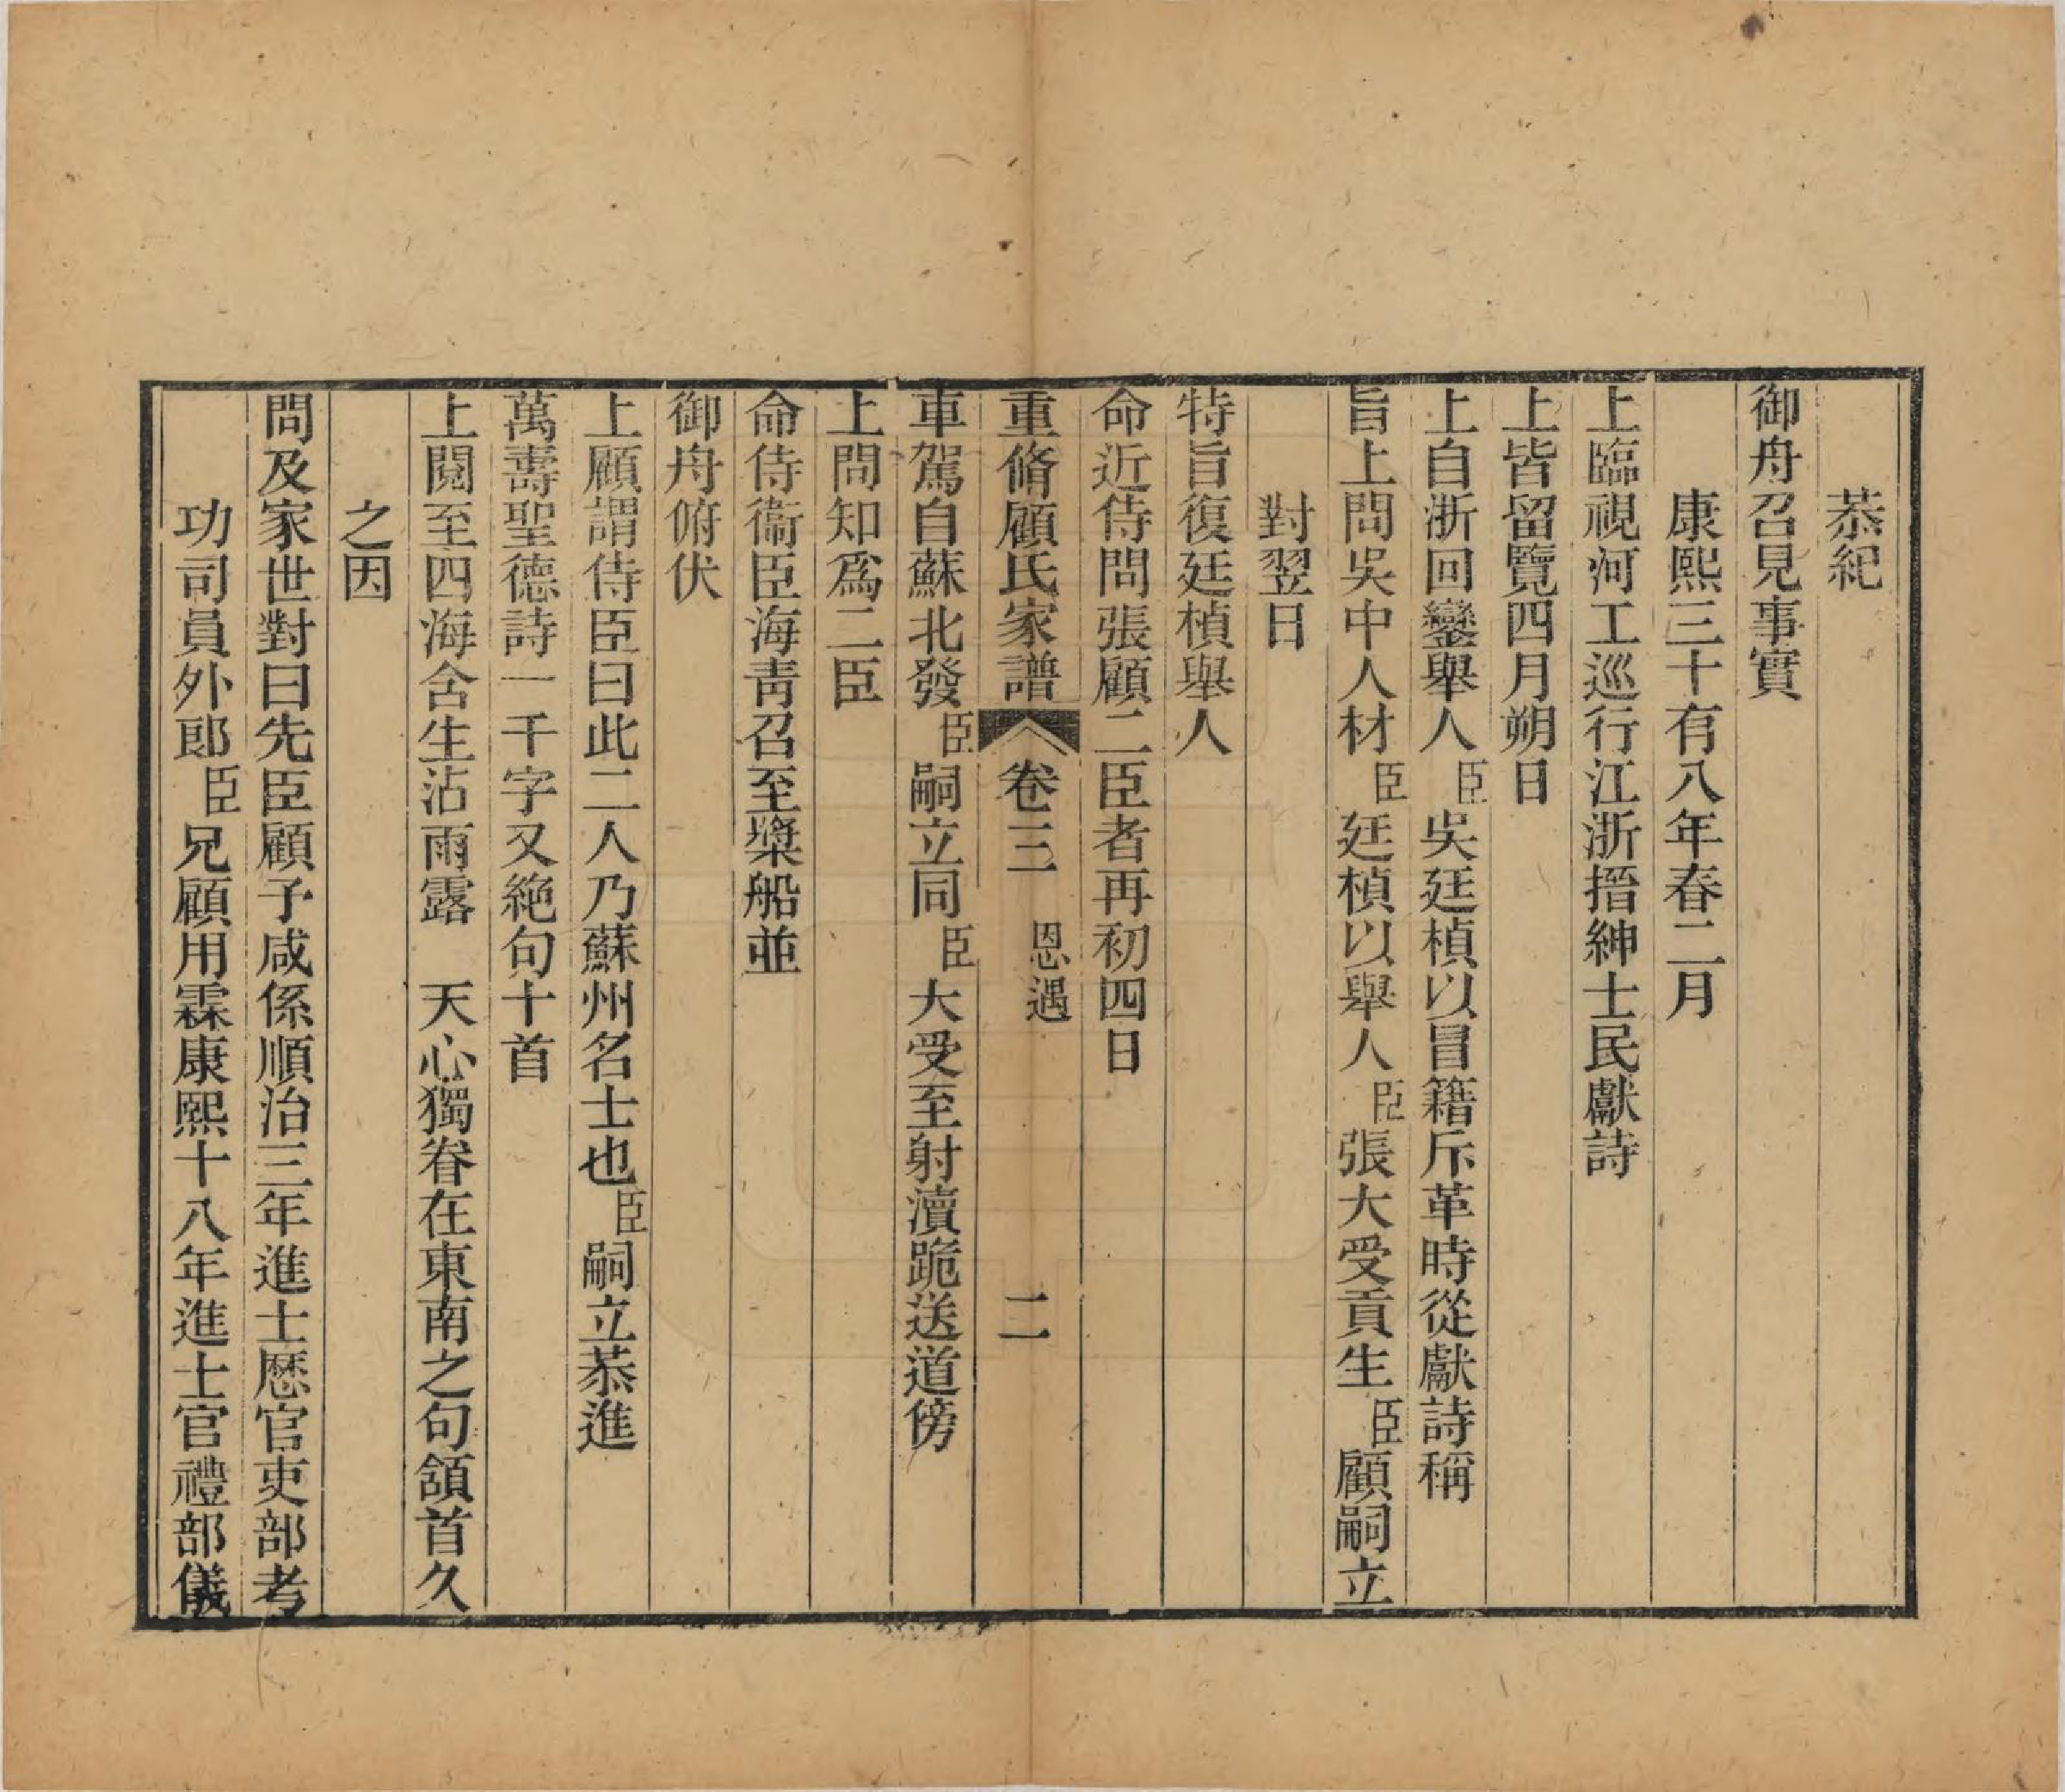 恭紀
御舟召見事實
康熙三十有八年春二月
上臨視河工巡行江浙搢紳士民獻詩
上皆留覽四月朔日
上自浙回鑾舉人臣吳廷楨以冒籍斥革時從獻詩稱
旨上問吳中人材臣廷楨以舉人臣張大受貢生臣顧嗣立
對翌日
特旨復廷楨舉人
命近侍問張顧二臣者再初四日
重脩顧氏家譜 卷三 恩遇 二
車駕自蘇北發臣嗣立同臣大受至射瀆跪送道傍
上問知爲二臣
命侍衞臣海靑召至槳船並
御舟俯伏
上顧謂侍臣曰此二人乃蘇州名士也臣嗣立恭進
萬壽聖德詩一千字又絕句十首
上閱至四海含生沾雨露 天心獨眷在東南之句頷首久
之因
問及家世對曰先臣顧予咸係順治三年進士歷官吏部考
功司員外郎臣兄顧用霖康熙十八年進士官禮部儀